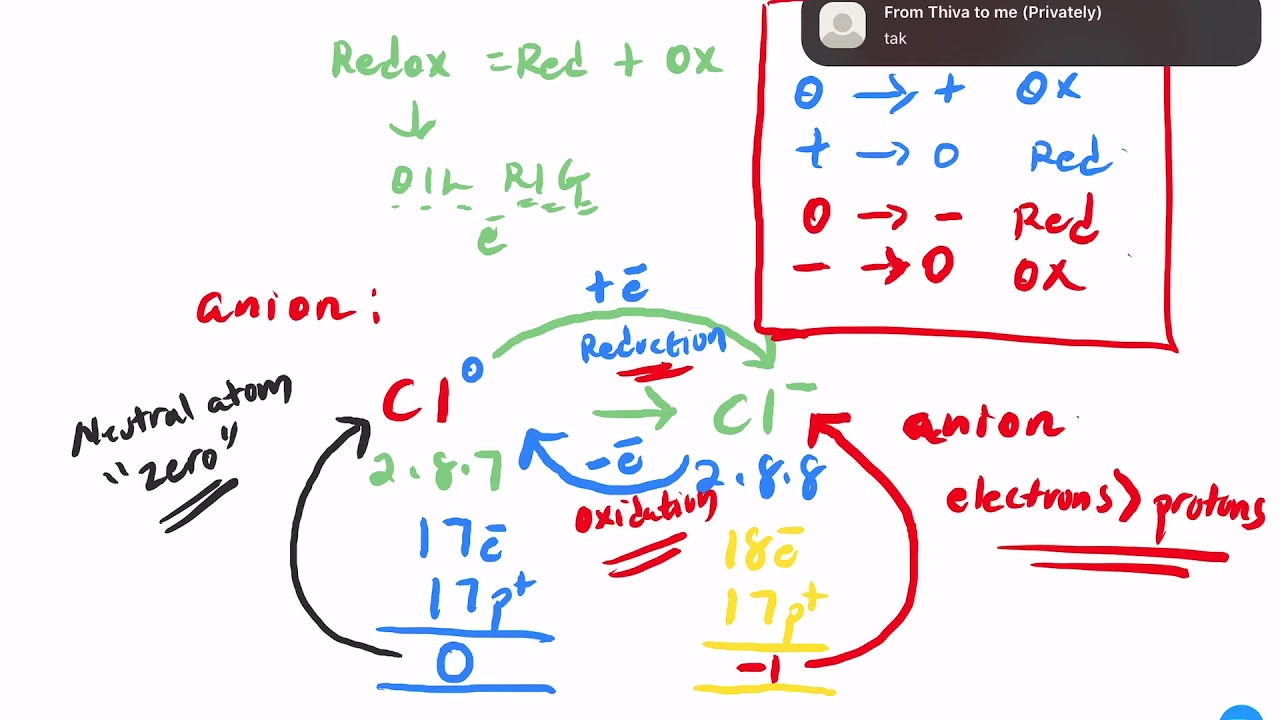 From Thiva to me (Privately)
tak
Redox = Red + OX
↓
OIL RIG
e̅
0 → + OX
+ → 0 Red
0 → - Red
- → 0 OX
anion :
+e̅
Reduction
Neutral atom
"zero"
Cl⁰ → Cl⁻
-e̅
oxidation
2.8.7
2.8.8
17e̅
17p⁺
0
18e̅
17p⁺
-1
anion
electrons > protons